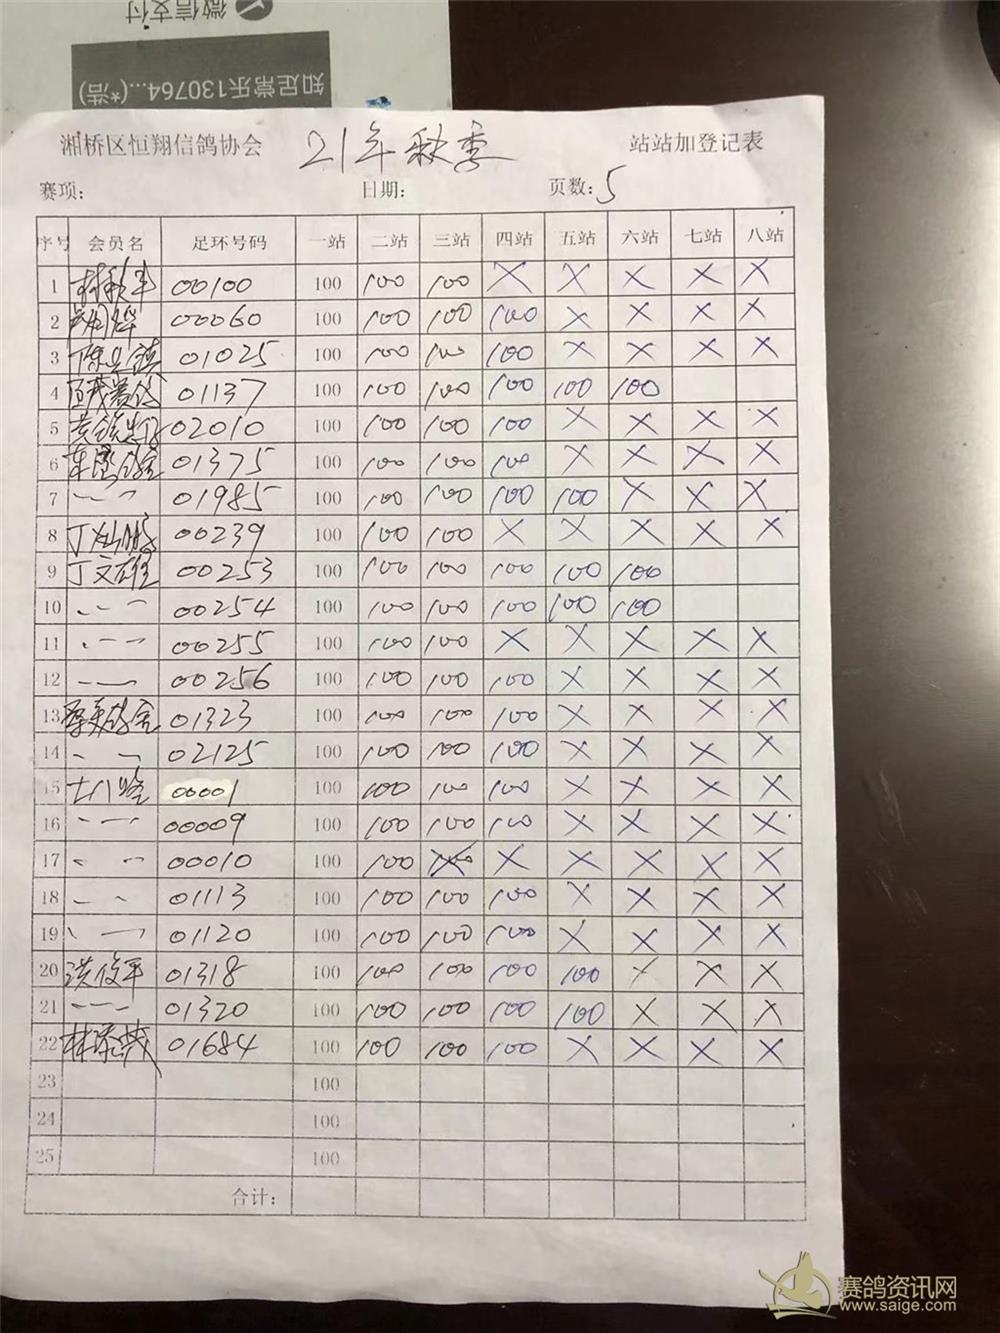 微信支付
知足常乐130764...(*浩)
湘桥区恒翔信鸽协会 21年秋季 站站加登记表
赛项: 日期: 页数: 5
序号 会员名 足环号码 一站 二站 三站 四站 五站 六站 七站 八站
1 00100 100 100 100 X X X X X
2 00060 100 100 100 100 X X X X
3 01025 100 100 100 100 X X X X
4 01137 100 100 100 100 100 100
5 02010 100 100 100 100 X X X X
6 01375 100 100 100 100 X X X X
7 〃 01985 100 100 100 100 100 X X X
8 00239 100 100 100 X X X X X
9 丁文雄 00253 100 100 100 100 100 100
10 〃 00254 100 100 100 100 100 100
11 〃 00255 100 100 100 X X X X X
12 〃 00256 100 100 100 100 X X X X
13 01323 100 100 100 100 X X X X
14 〃 02125 100 100 100 100 X X X X
15 00001 100 100 100 100 X X X X
16 〃 00009 100 100 100 100 X X X X
17 〃 00010 100 100 X X X X X
18 〃 01113 100 100 100 100 X X X X
19 〃 01120 100 100 100 100 X X X X
20 洪俊平 01318 100 100 100 100 100 X X X
21 〃 01320 100 100 100 100 100 X X X
22 01684 100 100 100 100 X X X X
23 100
24 100
25 100
合计:
赛鸽资讯网
www.saige.com